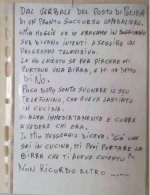 DAL VERBALE DEL POSTO DI POLIZIA
DI UN PRONTO SOCCORSO OSPEDALIERO.
"MIA MOGLIE ED IO ERAVAMO IN SOGGIORNO
SUL DIVANO INTENTI A SEGUIRE UN
PROGRAMMA TELEVISIVO.
LE HO CHIESTO SE PER PIACERE MI
PORTAVA UNA BIRRA, E MI HA DETTO
DI NO.
POCO DOPO SENTE SUONARE IL SUO
TELEFONINO, CHE AVEVA LASCIATO
IN CUCINA.
SI ALZA IMMEDIATAMENTE E CORRE
A VEDERE CHI ERA.
IL MIO MESSAGGIO DICEVA "GIÀ CHE
SEI IN CUCINA, MI PUOI PORTARE LA
BIRRA CHE TI AVEVO CHIESTO?"
NON RICORDO ALTRO